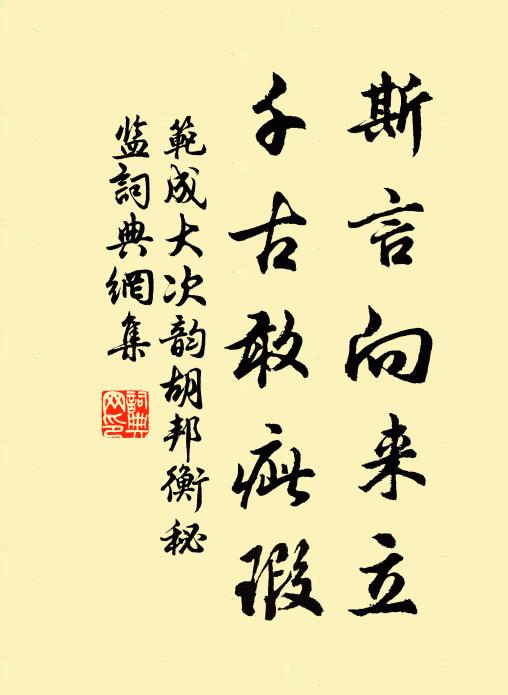 斯言向来立
千古敢疵瑕
範成大次韵胡邦衡秘
监詞典網集
詞典
网印